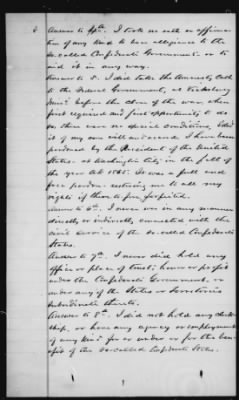 Answer to 4th. I took no oath or affirma-
tion of any kind to bear allegiance to the
so-called Confederate Government or to
aid it in any way.
Answer to 5. I did take the Amnesty Oath
to the Federal Government, at Vicksburg
Miss. before the close of the war, when
first required and first opportunity to do
so, there were no special conditions, I did
it of my own will and accord. I have been
pardoned by the President of the United
States at Washington City in the fall of
the year AD 1865. It was a full and
free pardon restoring me to all my
rights if them to fore forfeited.
Answer to 6th. I never was in any manner
directly or indirectly connected with the
civil service of the so-called Confederate
States.
Answer to 7th. I never did hold any
office or place of trust, honor or profit
under the Confederate Government, or
under any of the States or Territories
subordinate thereto.
Answer to 8th. I did not hold any clerk-
ship, or have any agency or employment
of any kind for or under or for the ben-
efit of the so-called Confederate States.